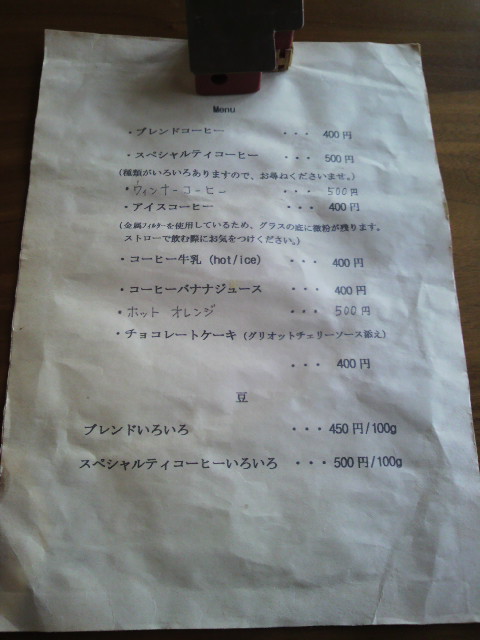 Menu
・ブレンドコーヒー ・・・ 400円
・スペシャルティコーヒー ・・・ 500円
(種類がいろいろありますので、お尋ねくださいませ。)
・ウィンナーコーヒー ・・・ 500円
・アイスコーヒー ・・・ 400円
(金属フィルターを使用しているため、グラスの底に微粉が残ります。
ストローで飲む際にお気をつけください。)
・コーヒー牛乳 (hot/ice) ・・・ 400円
・コーヒーバナナジュース ・・・ 400円
・ホット オレンジ ・・・ 500円
・チョコレートケーキ (グリオットチェリーソース添え)
・・・ 400円
豆
ブレンドいろいろ ・・・ 450円/100g
スペシャルティコーヒーいろいろ ・・・ 500円/100g